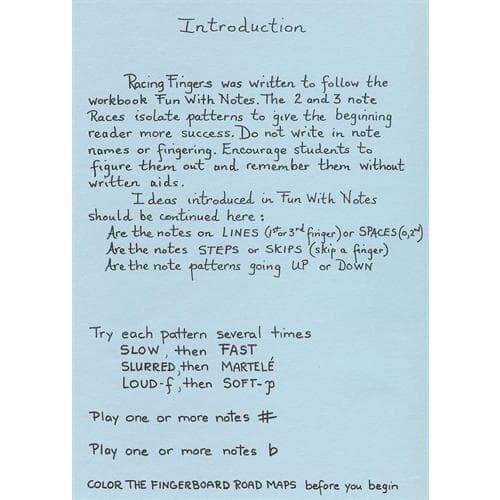 Introduction
Racing Fingers was written to follow the
workbook Fun With Notes. The 2 and 3 note
Races isolate patterns to give the beginning
reader more success. Do not write in note
names or fingering. Encourage students to
figure them out and remember them without
written aids.
Ideas introduced in Fun With Notes
should be continued here:
Are the notes on LINES (1st or 3rd finger) or SPACES (0,2nd)
Are the notes STEPS or SKIPS (skip a finger)
Are the note patterns going UP or DOWN
Try each pattern several times
SLOW, then FAST
SLURRED, then MARTELÉ
LOUD-f, then SOFT-p
Play one or more notes #
Play one or more notes b
COLOR THE FINGERBOARD ROAD MAPS before you begin